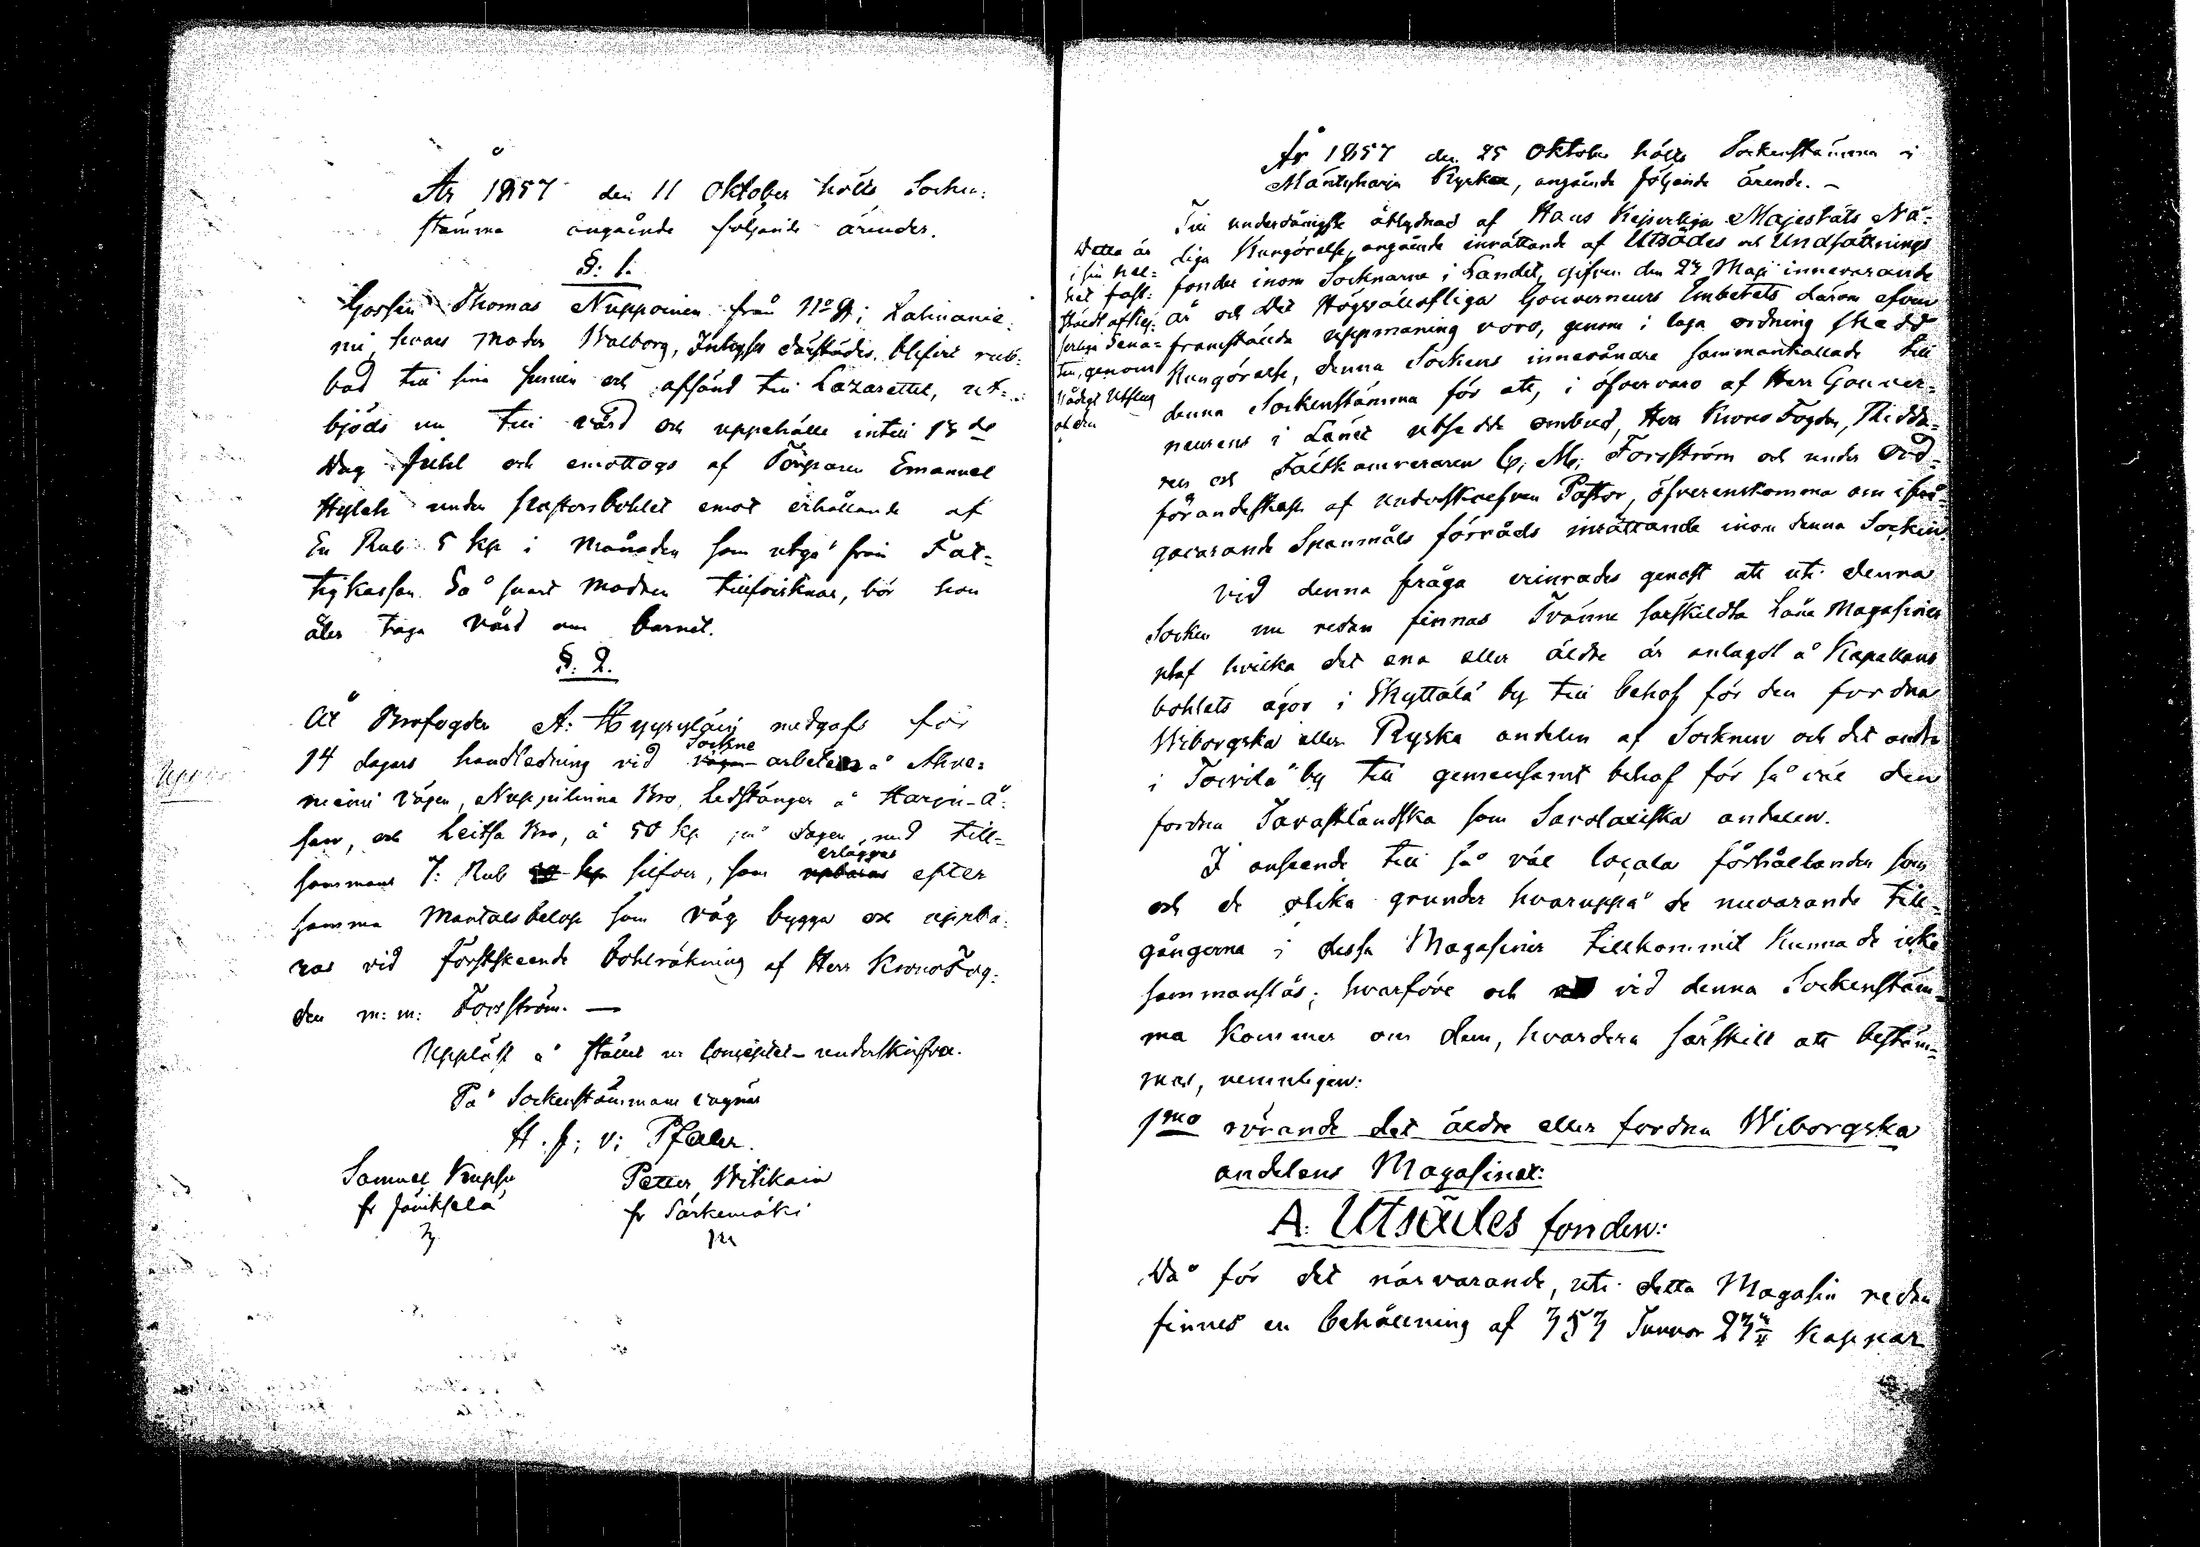 År 1857 den 11 Oktober hölls Socken:
stämma angående följande ärender.
§: 1.
Gossen Thomas Nupponen från No 9 i Lahnanie:
mi, hvars moder Walborg, Inhyses därstädes, blifvit rub:
bad till sina sinnen och afsänd till Lazarettet, ut=
bjöds nu till vård och uppehälle intill 13de
Dag Juhl och emottogs af Torparen Emanuel
under Pastorsbohlet emot erhållande af
En Rub 5 kp i månaden som utgå från Fat=
tigkassan. Så snart modren tillfrisknar, bör hon
åter taga vård om barnet.
§. 2.
Åt Brofogden A: Hyyryläin medgafs för
14 dagars handledning vid Sockne arbeten å Ahve=
niemi vägen, Nuppilinna Bro, Ledstänger å Harju-å:
sen, och Leitsa Bro, à 50 kp på dagen, med till=
sammans 7: Rub silfver, som erlägges efter
samma Mantalsbelopp som väg bygga och uppbä:
ras vid förstskeende Bohlräkning af Herr KronoFog:
den m: m: Forsström. —
Uppläst å stället ur Conceptet - underskrifva.
På Sockenstämmans vägnar
H. F: v: Pfaler.
Samuel Kuppi Petter Witikain
fr Jänikselä fr Särkemäki

År 1857 den 25 Oktober hölls Sockenstämma i
Mäntyharju Kyrka, angående följande ärende. -
Till underdånigste åtlydnad af Hans Kejserliga Majestäts Nå=
diga Kungörelse, angående inrättande af Utsädes och Undsättnings
fonder inom Socknarne i Landet, gifven den 27 Maji innevarande
år och Det Högvälloflige Gouverneurs Embetets därom äfven
framstälde uppmaning voro, genom i laga ordning skedd
Kungörelse, denna Sockens innevånare sammankallade till
denna Sockenstämma för att, i öfvervaro af Herr Gouver=
neurens i Länet utsedde ombud, Herr Krono Fogden, Ridda=
ren och Fältkamreraren C: M: Forsström och under Ord=
förandeskap af underskrefven Pastor, öfverenskomma om ifrå=
gavarande Spanmåls förråds inrättande inom denna Socken.
Detta är
i sin hel=
het fast:
stäldt af Kej:
serliga Sena=
ten, genom
Nådigt Utslag
af den
Vid denna fråga erinrades genast att uti denna
Socken nu redan finnas Tvänne särskildta Låne Magasiner
utaf hvilka det ena eller äldre är anlagdt å Kapellans
bohlets ägor i Skyttälä by till behof för den fordna
Wiborgska eller Ryska andelen af Socknen och det andra
i Toivila by till gemensamt behof för så väl den
fordna Tavastländska som Savolaxiska andelen.
I anseende till så väl locala förhållanden som
och de olika grunder hvaruppå de nuvarande till=
gångerna i dessa Magasiner tillkommit kunna de icke
sammanslås; hvarföre och vid denna Sockenstäm=
ma kommer om dem, hvardera särskilt att bestäm=
mas, nemligen:
1mo rörande det äldre eller fordna Wiborgska
andelens Magasinet:
A: Utsädes fonden:
Då för det närvarande, uti detta Magasin redan
finnes en behållning af 353 Tunnor 23 kappar